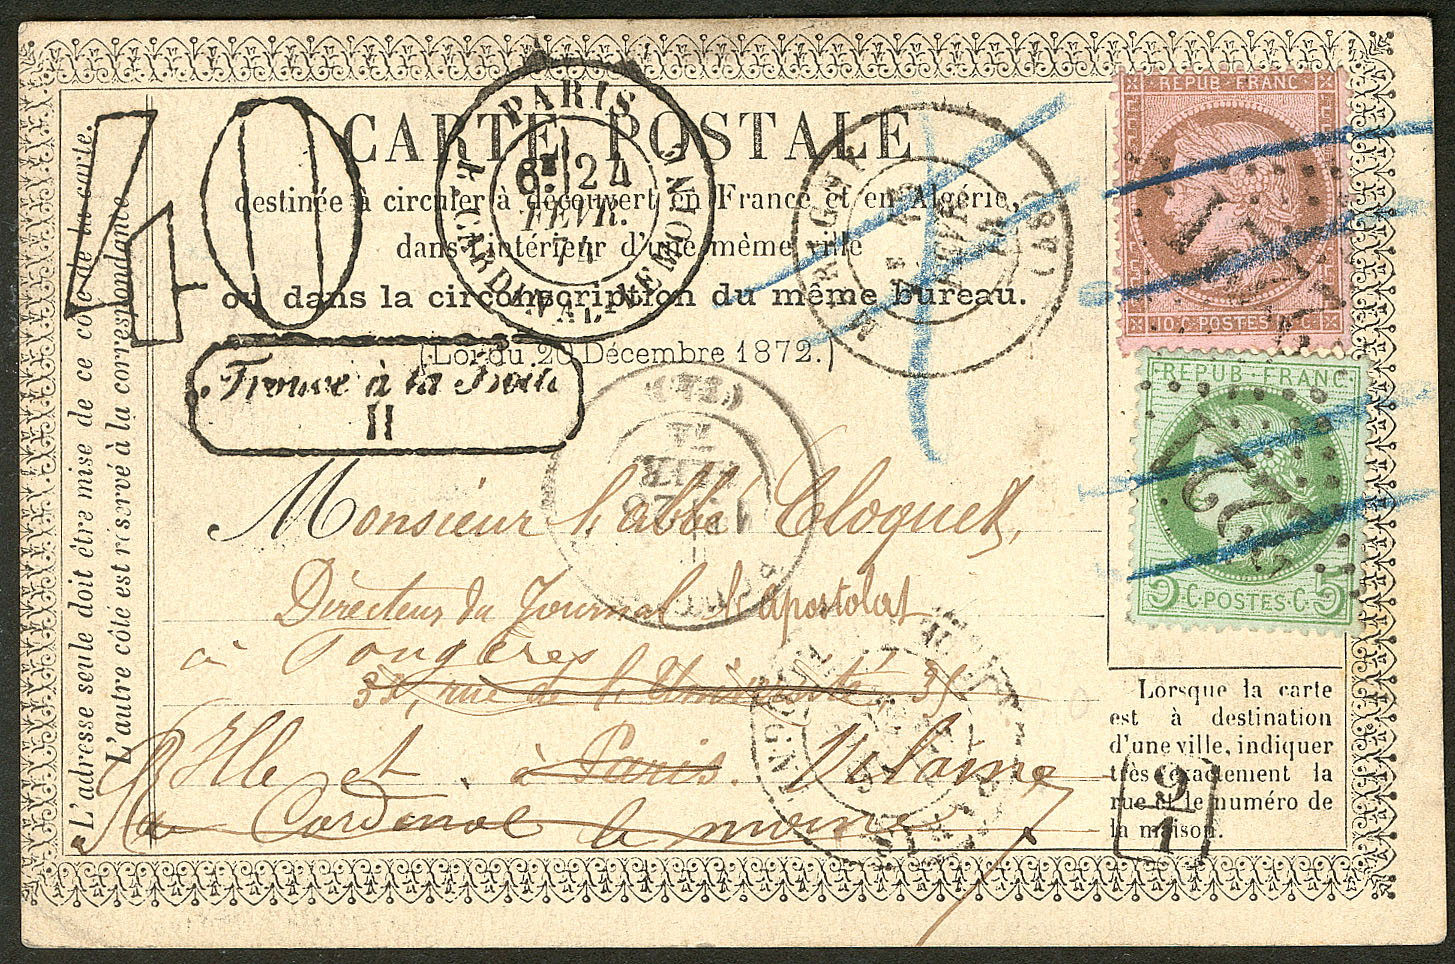 CARTE POSTALE
destinée à circuler à découvert en France et en Algérie,
dans l'intérieur d'une même ville
ou dans la circonscription du même bureau.
(Loi du 20 Décembre 1872.)
40
PARIS
6E 24
FEVR.
74
R. CARDINAL LEMOINE
Trouvé à la Boîte
11
FEVR
(86)
REPUB FRANC
10 C POSTES 10 C
REPUB FRANC
5 C POSTES C 5
Monsieur l'abbé Cloquet,
Directeur du Journal l'apostolat
à Fougères
35, rue de l'Université 35
Ille et à Paris. Vilaine
Cardinal le moine
L'adresse seule doit être mise de ce côté de la carte.
L'autre côté est réservé à la correspondance.
Lorsque la carte
est à destination
d'une ville, indiquer
très exactement la
rue et le numéro de
la maison.
9
1